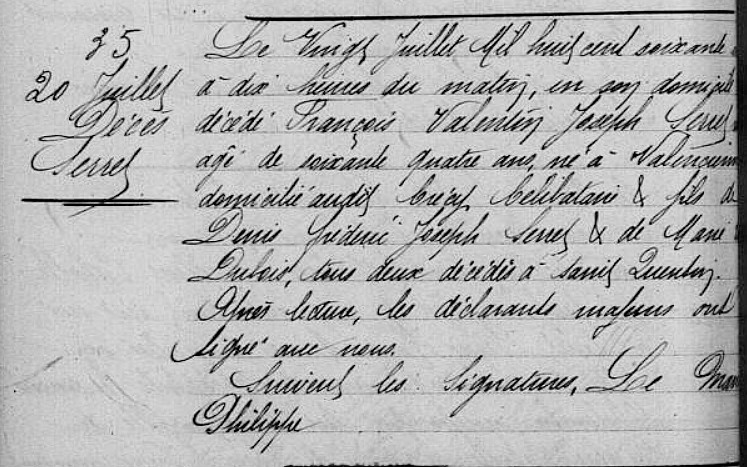 35
20 Juillet
Décès
Serret
Le Vingt Juillet Mil huit cent soixante
à dix heures du matin, en son domicile
décédé François Valentin Joseph Serret
agé de soixante quatre ans, né à Valencienn
domicilié audit Crécy Célibataire & fils de
Denis frédéric Joseph Serret & de Marie
Dubois, tous deux décédés à saint Quentin.
Après lecture, les déclarants majeurs ont
signé avec nous.
Suivent les signatures, Le Mai
Philippe